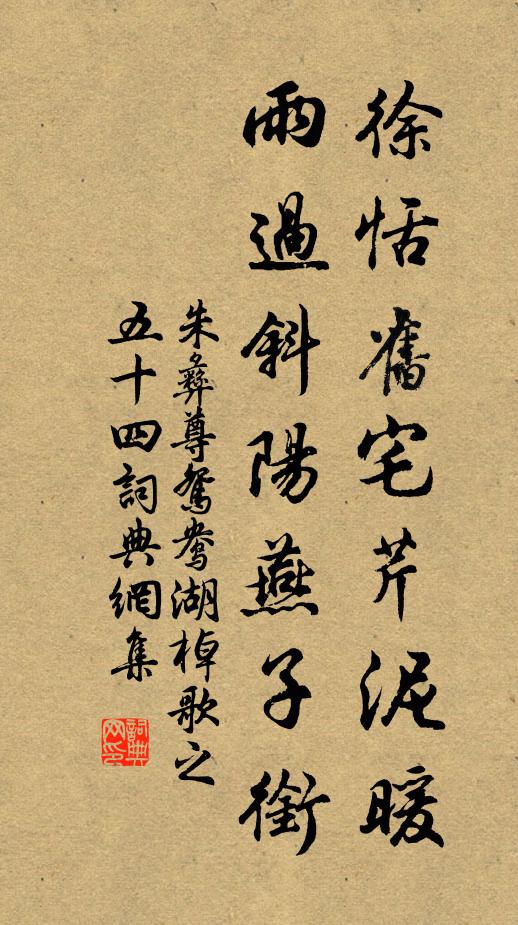 徐恬舊宅芹泥暖
雨過斜陽燕子銜
朱彝尊鴛鴦湖棹歌之
五十四詞典網集
詞典
网印